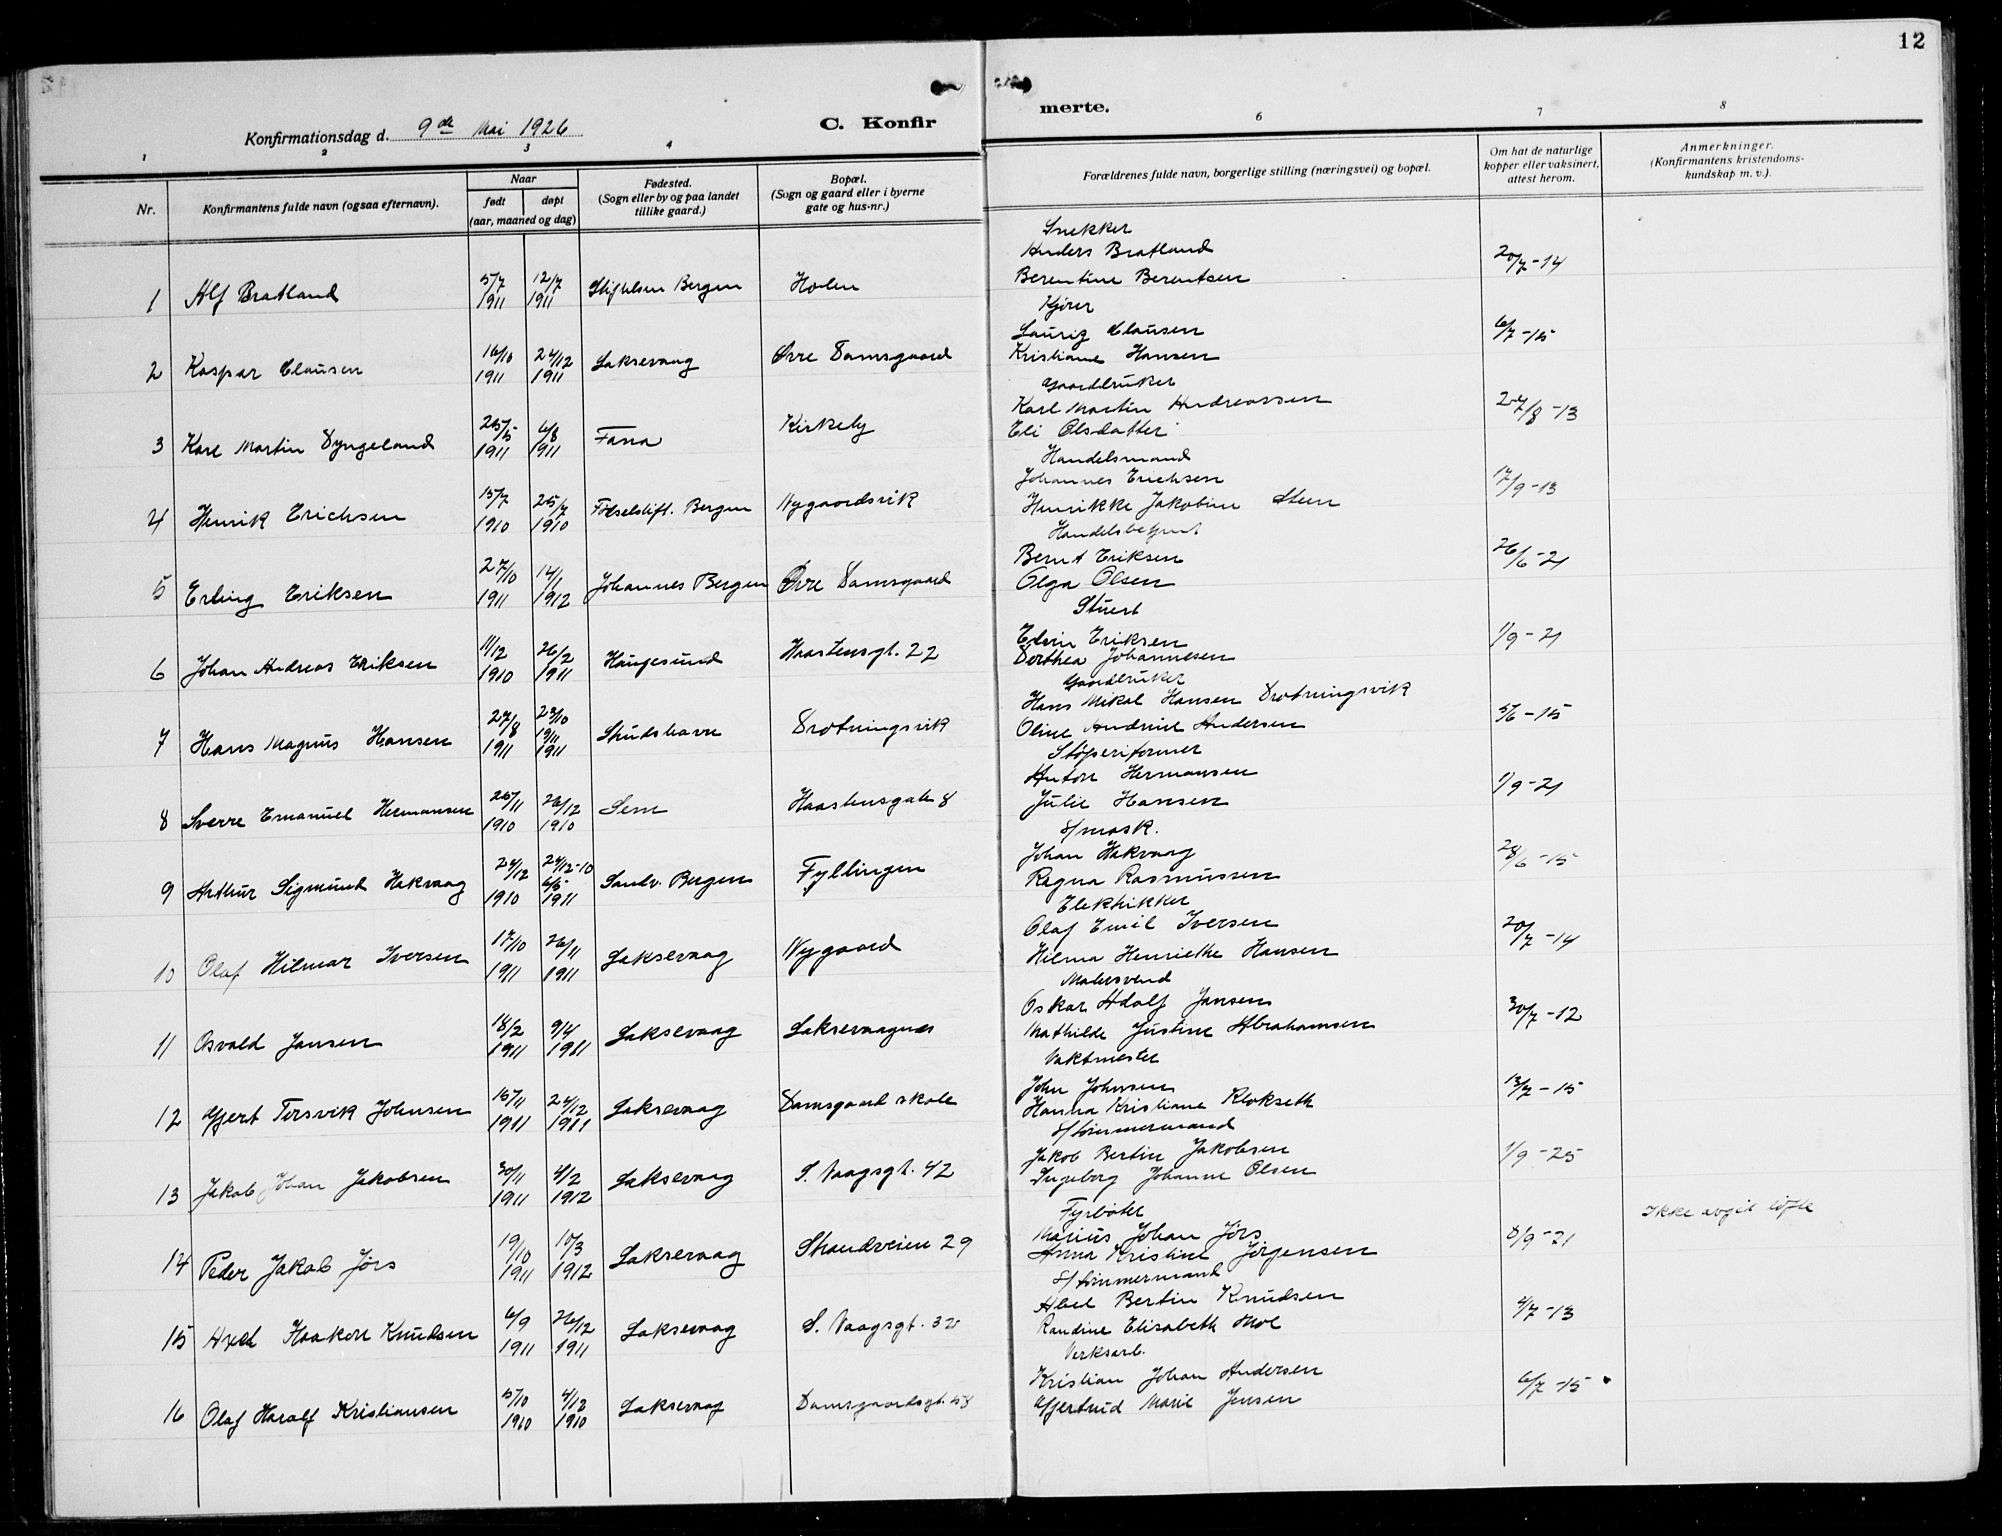 12
Konfirmationsdag d. 9de Mai 1926
C. Konfirmerte.
1 2 3 4 6 7 8
Nr.
Konfirmantens fulde navn (ogsaa efternavn).
Naar
født
døpt
(aar, maaned og dag)
Fødested.
(Sogn eller by og paa landet
tillike gaard.)
Bopæl.
(Sogn og gaard eller i byerne
gate og hus-nr.)
Forældrenes fulde navn, borgerlige stilling (næringsvei) og bopæl.
Om hat de naturlige
kopper eller vaksinert,
attest herom.
Anmerkninger.
(Konfirmantens kristendoms-
kundskap m. v.).
Snekker
1 Alf Bratland 5/7 1911 12/7 1911 Stiftelsen Bergen Holen Anders Bratland 20/7-14
Berentine Berentsen
Kjører
2 Kaspar Clausen 16/10 1911 24/12 1911 Laksevaag Øvre Damsgaard Lauriz Clausen 6/7-15
Kristiane Hansen
Gaardbruker
3 Karl Martin Dyngeland 25/5 1911 6/8 1911 Fana Kirkeby Karl Martin Andreassen 27/8-13
Eli Olsdatter
Handelsmand
4 Henrik Erichsen 15/7 1910 25/7 1910 Fødselstift. Bergen Nygaardsvik Johannes Erichsen 17/9-13
Henrikke Jakobine Steen
Handelsbetjent
5 Erling Eriksen 27/10 1911 14/1 1912 Johannes Bergen Øvre Damsgaard Bernt Eriksen 26/6-21
Olga Olsen
Stuert
6 Johan Andreas Eriksen 11/12 1910 26/2 1911 Haugesund Haastensgt. 22 Edvin Eriksen 1/9-21
Dorthea Johannesen
Gaardbruker
7 Hans Magnus Hansen 27/8 1911 29/10 19/11 1911 Skudshavn Drotningsvik Hans Mikal Hansen Drotningsvik 5/6-15
Oline Andrine Andersen
Støperiformer
8 Sverre Emanuel Hermansen 25/11 1910 26/12 1910 Sem Haastensgate 8 Anton Hermansen 1/9-21
Julie Hansen
S/mask.
9 Arthur Sigmund Hakvaag 24/12 1910 24/12-10 6/5 1911 Sandv. Bergen Fyllingen Johan Hakvaag 28/6-15
Ragna Rasmussen
Elektrikker
10 Olaf Hilmar Iversen 17/10 1911 26/11 1911 Laksevaag Nygaard Olaf Emil Iversen 20/7-14
Hilma Henriette Hansen
Malersvend
11 Osvald Jansen 18/2 1911 9/4 1911 Laksevaag Laksevaagnes Oskar Adolf Jansen 30/7-12
Mathilde Justine Abrahamsen
Vaktmester
12 Gjert Torsvik Johnsen 15/11 1911 24/12 1911 Laksevaag Damsgaard skole John Johnsen 13/7-15
Hanna Kristiane Klokseth
S/tømmermand
13 Jakob Johan Jakobsen 30/11 1911 4/2 1912 Laksevaag S. Vaagsgt. 42 Jakob Bertin Jakobsen 1/9-25
Ingeborg Johanne Olsen
Fyrbøter
14 Peder Jakob Jørs 19/10 1911 10/3 1912 Laksevaag Strandveien 29 Marius Johan Jørs 8/9-21 Ikke avgit løfte
Anna Kristine Jørgensen
S/tømmermand
15 Axel Haakon Knudsen 6/9 1911 26/12 1911 Laksevaag S. Vaagsgt. 32 Abel Bertin Knudsen 4/7-13
Randine Elisabeth Mol
Verksarb.
16 Olaf Harald Kristiansen 5/10 1910 4/12 1910 Laksevaag Damsgaardsgt. 58 Kristian Johan Andersen 6/7-15
Gjertrud Marie Jensen